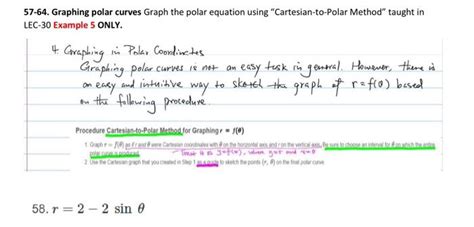 57-64. Graphing polar curves Graph the polar equation using “Cartesian-to-Polar Method” taught in
LEC-30 Example 5 ONLY.
4. Graphing in Polar Coordinates
Graphing polar curves is not an easy task in general. However, there is
an easy and intuitive way to sketch the graph of r = f(θ) based
on the following procedure.
Procedure Cartesian-to-Polar Method for Graphing r = f(θ)
1. Graph r = f(θ) as if r and θ were Cartesian coordinates with θ on the horizontal axis and r on the vertical axis. Be sure to choose an interval for θ on which the entire
polar curve is produced.
2. Use the Cartesian graph that you created in Step 1 as a guide to sketch the points (r, θ) on the final polar curve.
58. r = 2 − 2 sin θ